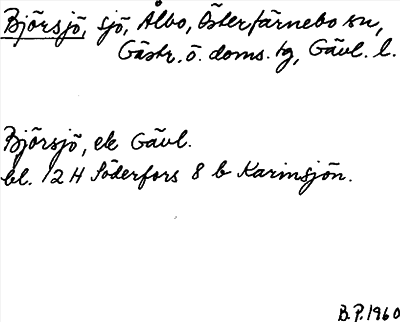 Björsjö, sjö, Ålbo, Österfärnebo sn,
Gästr. ö. doms. tg, Gävl. l.
Björsjö, ek Gävl.
bl. 12 H Söderfors 8 b Karinsjön.
B.P. 1960